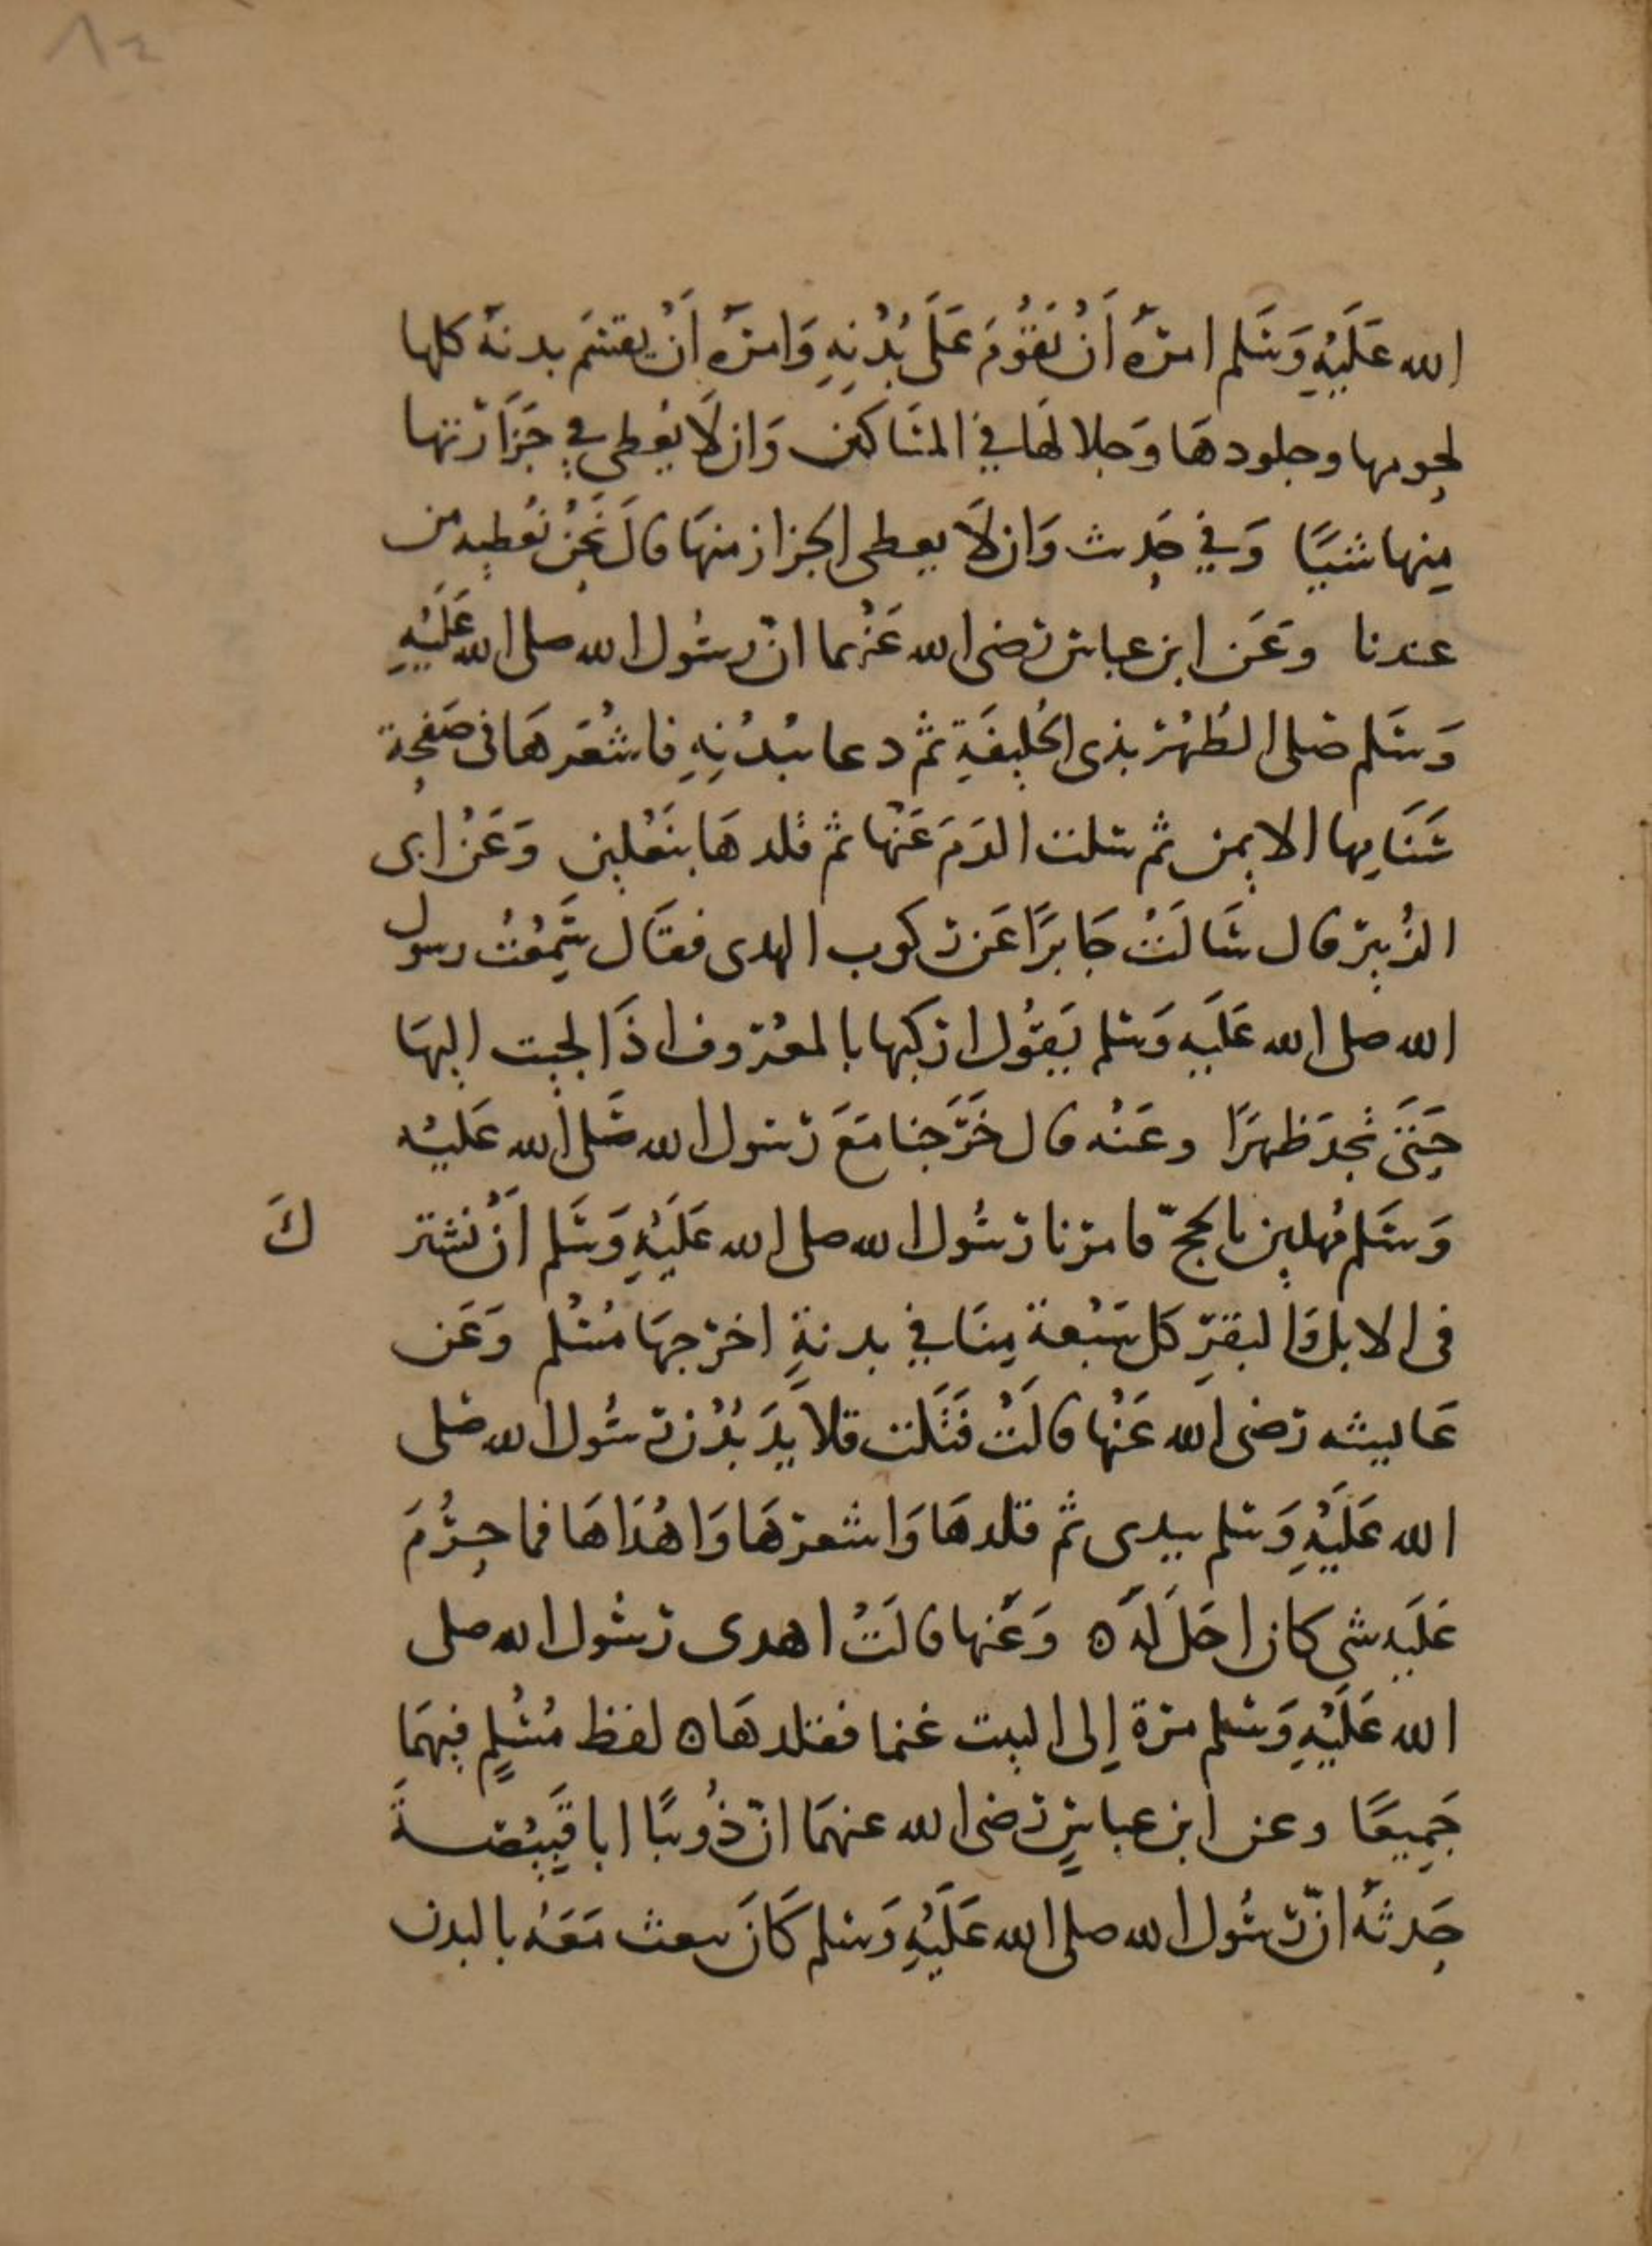 ٨٢
الله عَلَيْهِ وَسَلم امرَهُ أَنْ نَقُوُمَ عَلَى بُدْنِهِ وَامرَهُ أَنْ يقسَم بدنهُ كلها
لحومها وجلودهَا وَجلالهَا فِي المسَاكين وَان لَا يُعطى فِي جَزَارتها
مِنها شيئًا وَفي حَدِيث وَان لَا يعطى الجزار منهَا قالَ نَحْنُ نُعطيه من
عندنا وَعَن ابن عباس رَضى الله عَنْهما انّ رسُول الله صلى الله عَلَيْهِ
وَسَلم صَلى الظُهْر بذى الحُلَيفَةِ ثم دعا ببُدْنِهِ فاشْعَرهَا فى صَفحِة
سَنَامها الايمن ثم سَلت الدَمَ عَنْها ثم قلدهَا بنَعْلين وَعَنْ ابى
الزُبير قال سَالَتُ جَابرًا عَن ركوب الهدى فقَال سَمِعْتُ رسول
الله صلى الله عَلَيه وَسَلم يَقُول اركبها بالمعْروف اذَا لجيت اليهَا
حَتىَ تجدَ ظهرًا وعَنْه قال خَرَجنا مَعَ رَسول الله صَلى الله عَليْه
وَسَلم مُهلين بالحجّ فامرنا رَسُول الله صلى الله عَلَيْهِ وَسَلم أَنْ نشتر كَ
فى الابل وَالبقرِ كل سَبْعة مِنَا فِي بدنةٍ اخرجهَا مُسْلم وَعَن
عَاييشه رَضى الله عَنْها قالَتْ فَتَلت قلايدَ بُدْن رَسُول الله صَلى
الله عَلَيْهِ وَسَلم بيدى ثم قلدهَا وَاشعرهَا وَاهْدَاهَا فما حرُمَ
عَلَيه شى كان احَل لَهُ ه وَعَنها قالَتْ اهدى رَسُول الله صلى
الله عَلَيْهِ وَسَلم مرة إلى البيت غنما فقلدهَا ه لفظ مُسْلِمٍ فيهمَا
جَمِيعًا وعن ابن عباسٍ رَضى الله عنهمَا انّ ذُوبًا ابا قَبِيْصةَ
حَدثهُ انّ رَسُول الله صلى الله عَلَيْهِ وَسَلم كَانَ يبعث مَعَهُ بالبدن